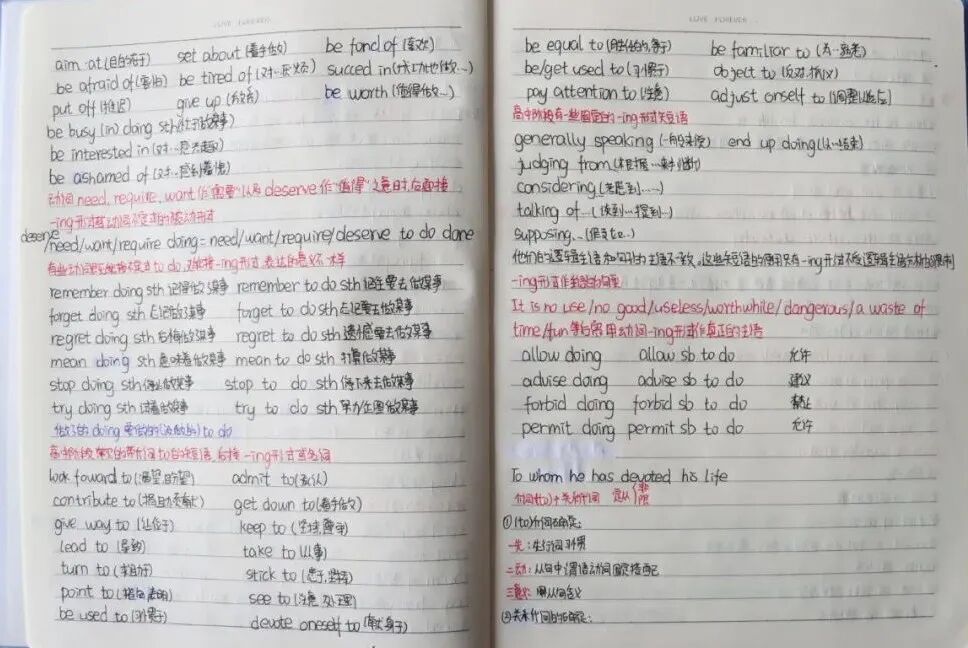 LOVE FOREVER
aim at (目的在于) set about (着手做) be fond of (喜欢)
be afraid of (害怕) be tired of (对…厌烦) succed in (成功地做…)
put off (推迟) give up (放弃) be worth (值得做…)
be busy (in) doing sth (忙于做某事)
be interested in (对…感兴趣)
be ashamed of (对…感到羞愧)
动词 need, require, want 作"需要"以及 deserve 作"值得"之意时,后面接
-ing形式或动词不定式的被动形式
deserve/need/want/require doing = need/want/require/deserve to do done
有些动词既能接不定式 to do, 又能接-ing形式,表达的意义不一样
remember doing sth 记得做某事 remember to do sth 记住要去做某事
forget doing sth 忘记做了某事 forget to do sth 忘记要去做某事
regret doing sth 后悔做某事 regret to do sth 遗憾要去做某事
mean doing sth 意味着做某事 mean to do sth 打算做某事
stop doing sth 停止做某事 stop to do sth 停下来去做某事
try doing sth 试着做某事 try to do sth 努力企图做某事
做了的 doing 要做的(没做的) to do
高中阶段常见的带介词to的短语,后接-ing形式或名词
look foward to (渴望,盼望) admit to (承认)
contribute to (捐助,贡献) get down to (着手做)
give way to (让位于) keep to (坚持,遵守)
lead to (导致) take to (从事)
turn to (求助于) stick to (忠于,坚持)
point to (指向,表明) see to (注意,处理)
be used to (习惯于) devote oneself to (献身于)
LOVE FOREVER
be equal to (胜任的,等于) be familiar to (为…熟悉)
be/get used to (习惯于) object to (反对,抗议)
pay attention to (注意) adjust onself to (调整,适应)
高中阶段有一些固定的-ing形式短语
generally speaking (一般来说) end up doing (以…结束)
judging from (根据…来判断)
considering (考虑到……)
talking of… (谈到…提到…)
supposing… (假如…)
他们的逻辑主语和句子的主语不一致,这些短语的使用只有-ing形式,不受逻辑主语方面的限制
-ing形式作
It is no use/no good/useless/worthwhile/dangerous/a waste of
time/fun 等后常用动词-ing形式作真正的主语
allow doing allow sb to do 允许
advise doing advise sb to do 建议
forbid doing forbid sb to do 禁止
permit doing permit sb to do 允许
To whom he has devoted his life
介词(to)+关系代词 定从 {非 限
①(to)介词的确定:
一先:先行词习惯
二动:从句中谓语动词固定搭配
三意:从句意义
②关系代词的确定: